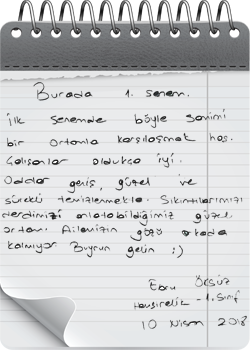 Burada 1. senem.
İlk senemde böyle samimi
bir ortamla karşılaşmak hoş.
Çalışanlar oldukça iyi.
Odalar geniş, güzel ve
sürekli temizlenmekte. Sıkıntılarımızı
derdimizi anlatabildiğimiz güzel
ortam. Ailemizin gözü arkada
kalmıyor Buyrun gelin :)
Ebru Öksüz
Hemşirelik - 1. Sınıf
10 Nisan 2018